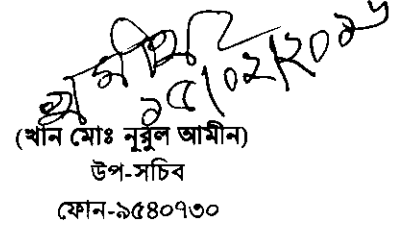 ১৫/০২/২০১৬
(খান মোঃ নূরুল আমীন)
উপ-সচিব
ফোন-৯৫৪০৭৩০